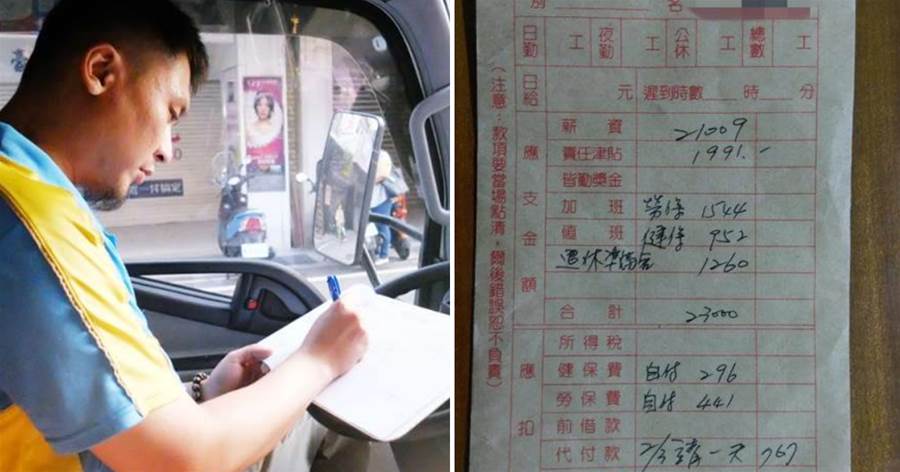 別 名
日勤 工 夜勤 工 公休 工 總數 工
日給 元 遲到時數 時 分
(注意:款項要當場點清,爾後錯誤恕不負責)
應支金額
薪資 21009
責任津貼 1991.-
皆勤獎金
加班 勞保 1544
值班 健保 952
退休準備金 1260
合計 23000
應扣
所得稅
健保費 自付 296
勞保費 自付 441
前借款
代付款 2/3 請一天 767